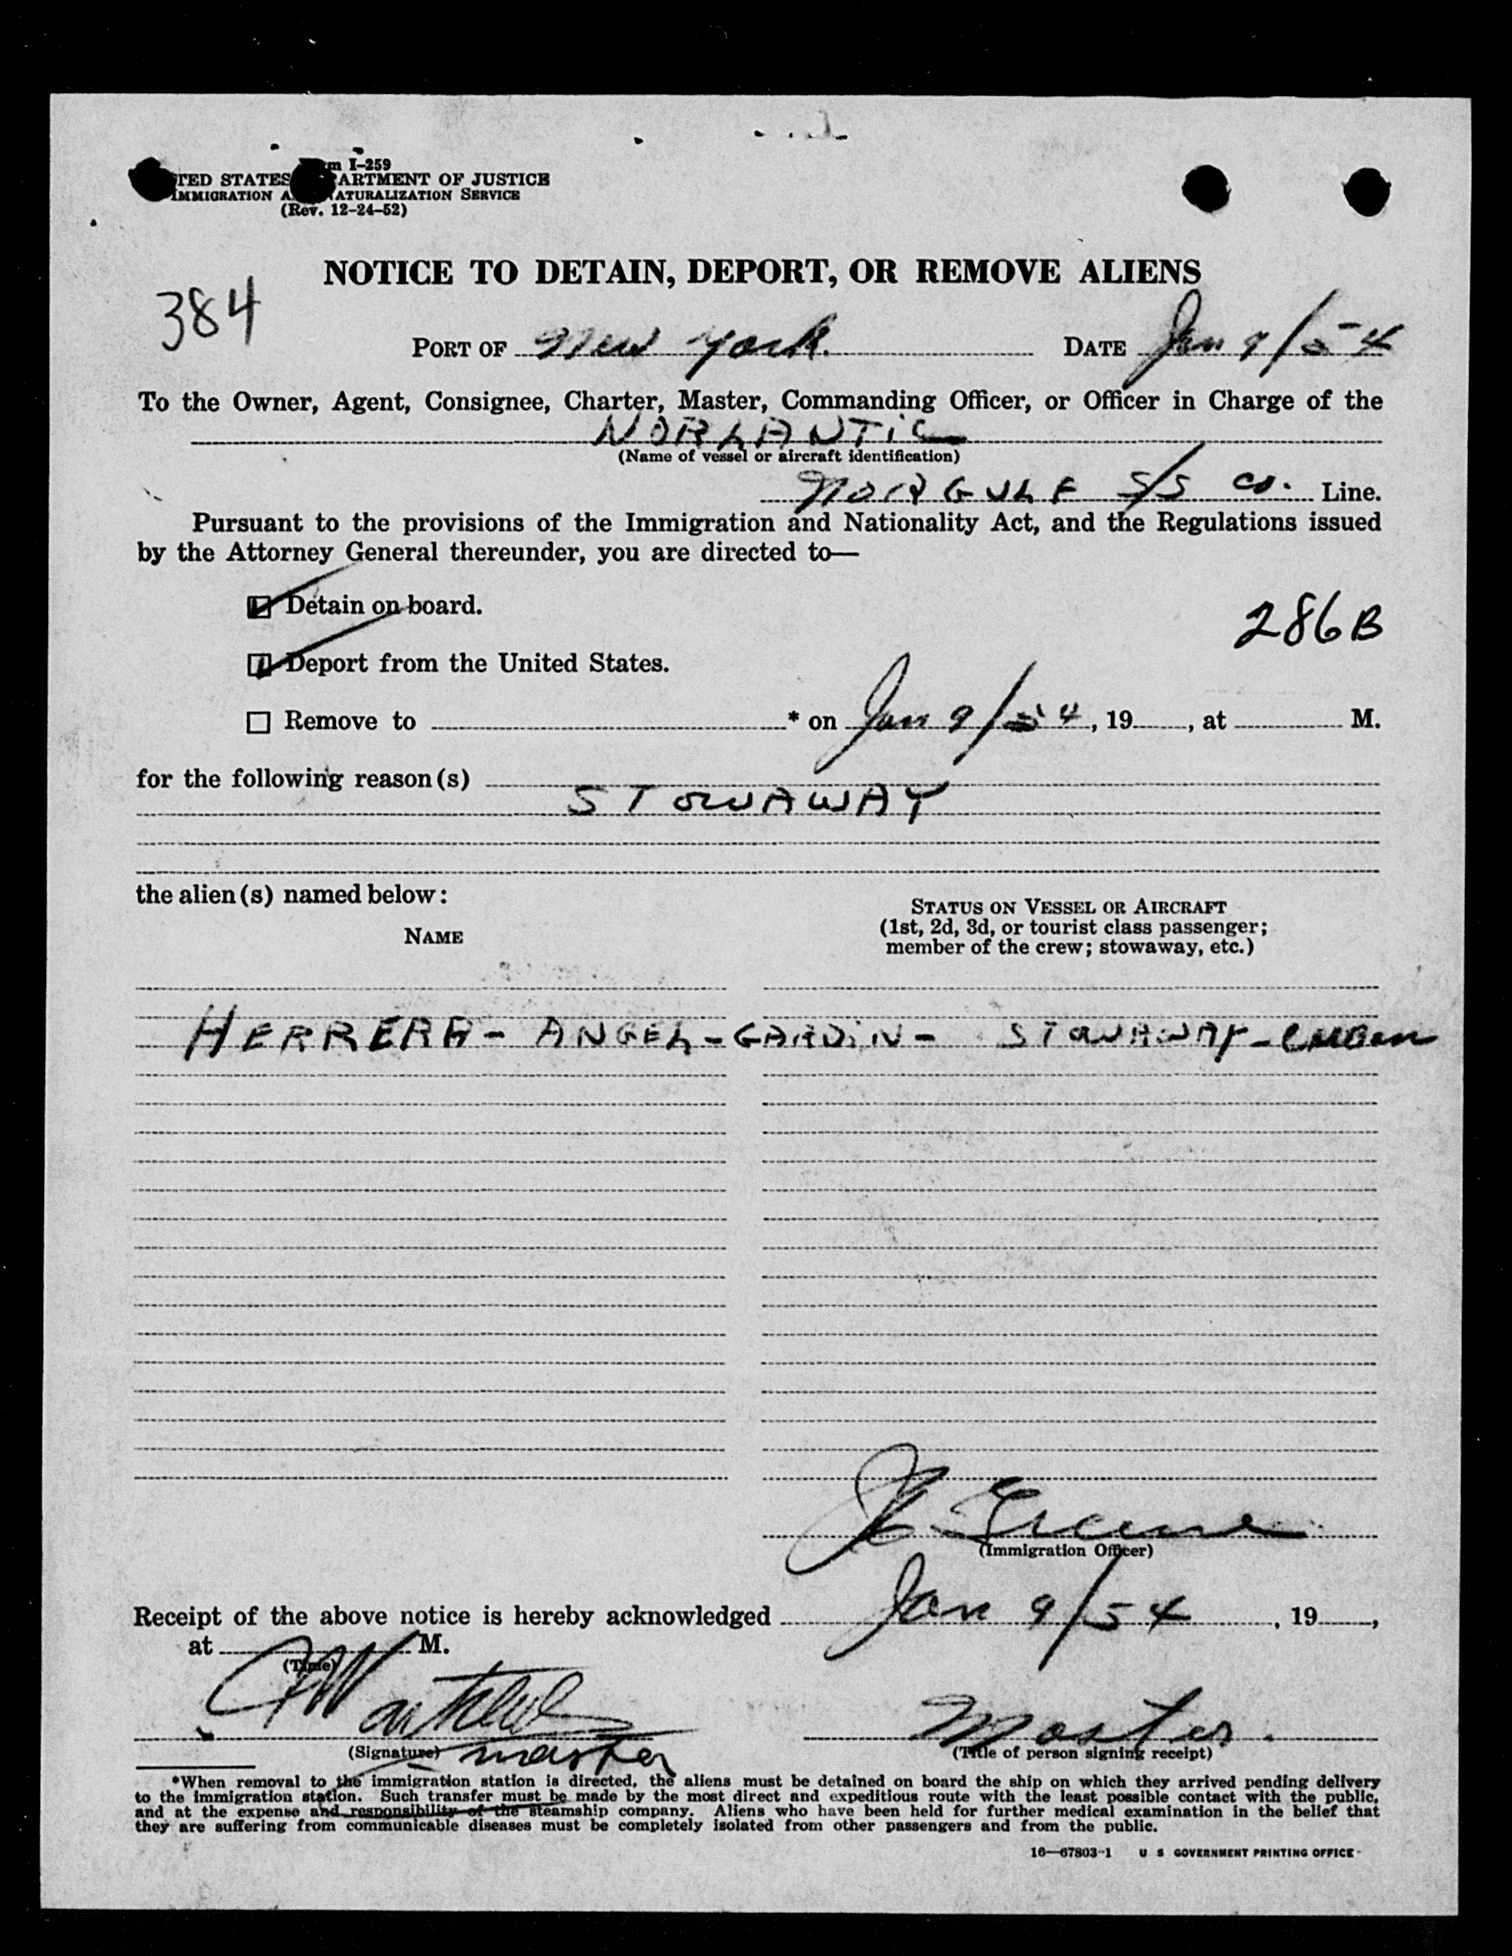 Form I-259
UNITED STATES DEPARTMENT OF JUSTICE
IMMIGRATION AND NATURALIZATION SERVICE
(Rev. 12-24-52)
NOTICE TO DETAIN, DEPORT, OR REMOVE ALIENS
384
PORT OF New York. DATE Jan 9/54
To the Owner, Agent, Consignee, Charter, Master, Commanding Officer, or Officer in Charge of the
NORLANTIC
(Name of vessel or aircraft identification)
NORGULF S/S Co. Line.
Pursuant to the provisions of the Immigration and Nationality Act, and the Regulations issued
by the Attorney General thereunder, you are directed to—
Detain on board.
286B
Deport from the United States.
Remove to * on Jan 9/54, 19, at M.
for the following reason(s)
STOWAWAY
the alien(s) named below:
NAME
STATUS ON VESSEL OR AIRCRAFT
(1st, 2d, 3d, or tourist class passenger;
member of the crew; stowaway, etc.)
HERRERA - ANGEL - GARDIN - STOWAWAY - CUBAN
Greene
(Immigration Officer)
Receipt of the above notice is hereby acknowledged Jan 9/54, 19,
at M.
(Time)
Master.
(Signature) master (Title of person signing receipt)
*When removal to the immigration station is directed, the aliens must be detained on board the ship on which they arrived pending delivery
to the immigration station. Such transfer must be made by the most direct and expeditious route with the least possible contact with the public,
and at the expense and responsibility of the steamship company. Aliens who have been held for further medical examination in the belief that
they are suffering from communicable diseases must be completely isolated from other passengers and from the public.
16—67803-1 U S GOVERNMENT PRINTING OFFICE